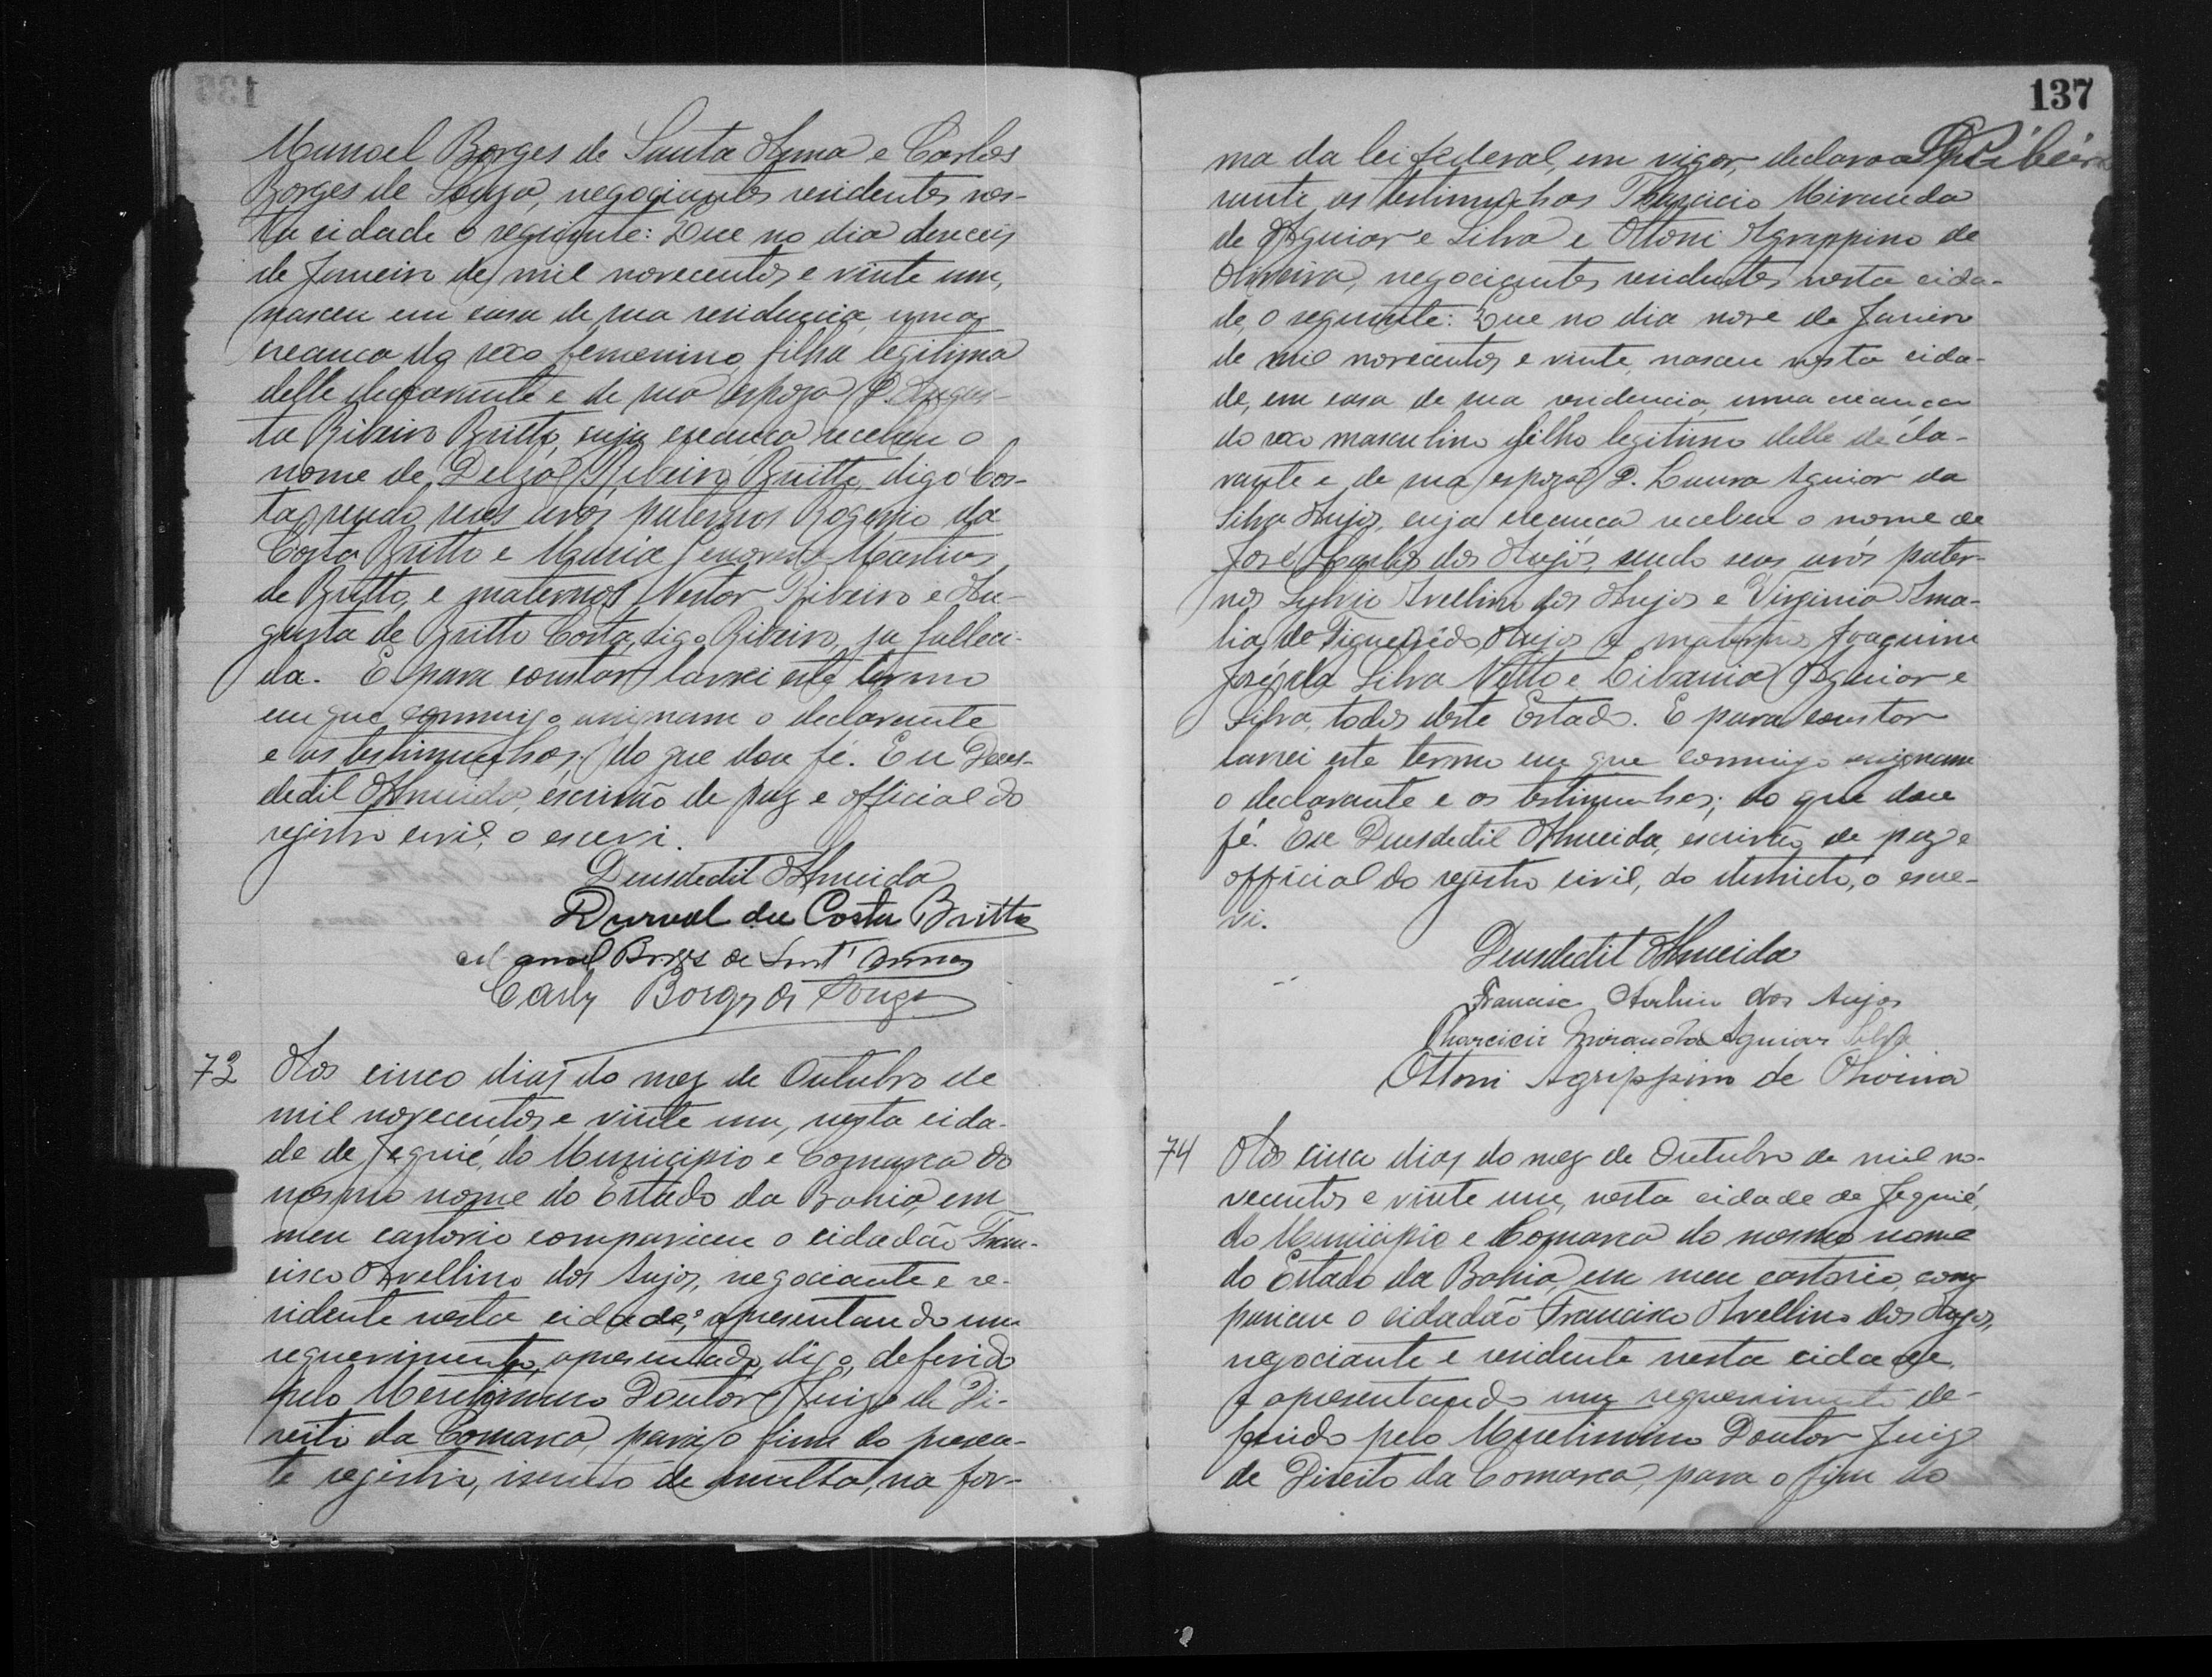 Manoel Borges de Santa Anna e Carlos
Borges de Souza, negociantes residentes nes-
ta cidade o seguinte: Que no dia deseceis
de Janeiro de mil novecentos e vinte um,
nasceu em casa de sua residencia, uma
creança do sexo femenino, filha legitima
delle declarante e de sua espoza D. Augus-
ta Ribeiro Britto, cuja creança recebeu o
nome de Delza Ribeiro Britto, digo Cos-
ta, sendo seus avós paternos Rogerio da
Costa Britto e Maria Martins
de Britto, e maternos Nestor Ribeiro e Au-
gusta de Britto Costa, digo Ribeiro, ja falleci-
da. E para constar lavrei este termo
em que commigo assignam o declarante
e as testimunhas; do que dou fé. Eu Deus-
dedit Almeida, escrivão de paz e official do
registro civil, o escrevi.
Deusdedit Almeida
Durval da Costa Britto
Manoel Borges de Sant'Anna
Carlos Borges de Souza
73 Aos cinco dias do mez de Outubro de
mil novecentos e vinte um, nesta cida-
de de Jequié, do Municipio e Comarca do
mesmo nome do Estado da Bahia, em
meu cartorio compareceu o cidadão Fran-
cisco Avellino dos Anjos, negociante e re-
sidente nesta cidade, e apresentando um
requerimento, apresentado, digo, deferido
pelo Meretissimo Doutor Juiz de Di-
reito da Comarca, para o fim do presen-
te registro, isento de multa, na for-
137
ma da lei federal, em vigor, declarou pe- Ribeiro
rante as testimunhas Tharcicio Miranda
de Aguiar e Silva e Ottoni Agrippino de
Oliveira, negociantes residentes nesta cida-
de, o seguinte: Que no dia nove de Janeiro
de mil novecentos e vinte, nasceu nesta cida-
de, em casa de sua residencia, uma creança
do sexo masculino filho legitimo delle decla-
rante e de sua espoza D. Laura Aguiar da
Silva Anjos, cuja creança recebeu o nome de
José Carlos dos Anjos, sendo seus avós pater-
nos Sylvio Avellino dos Anjos e Virginia Ama-
lia de Figueiredo Anjos e maternos Joaquim
José da Silva Netto e Libania Aguiar e
Silva, todos deste Estado. E para constar
lavrei este termo em que commigo assignam
o declarante e as testimunhas; do que dou
fé. Eu Deusdedit Almeida, escrivão de paz e
official do registro civil, do districto, o escre-
vi.
Deusdedit Almeida
Francisco Avelino dos Anjos
Tharcicio Miranda Aguiar Silva
Ottoni Agrippino de Oliveira
74 Aos cinco dias do mez de Outubro de mil no-
vecentos e vinte um, nesta cidade de Jequié,
do Municipio e Comarca do mesmo nome
do Estado da Bahia, em meu cartorio, com-
pareceu o cidadão Francisco Avellino dos Anjos,
negociante e residente nesta cidade,
e apresentando um requerimento de-
ferido pelo Meretissimo Doutor Juiz
de Direito da Comarca, para o fim do